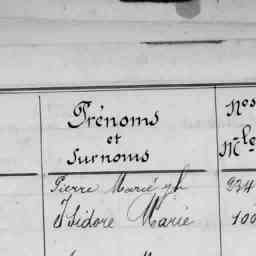 Prénoms Nos
et
Surnoms Mle
Pierre Marie 234
Isidore Marie 100